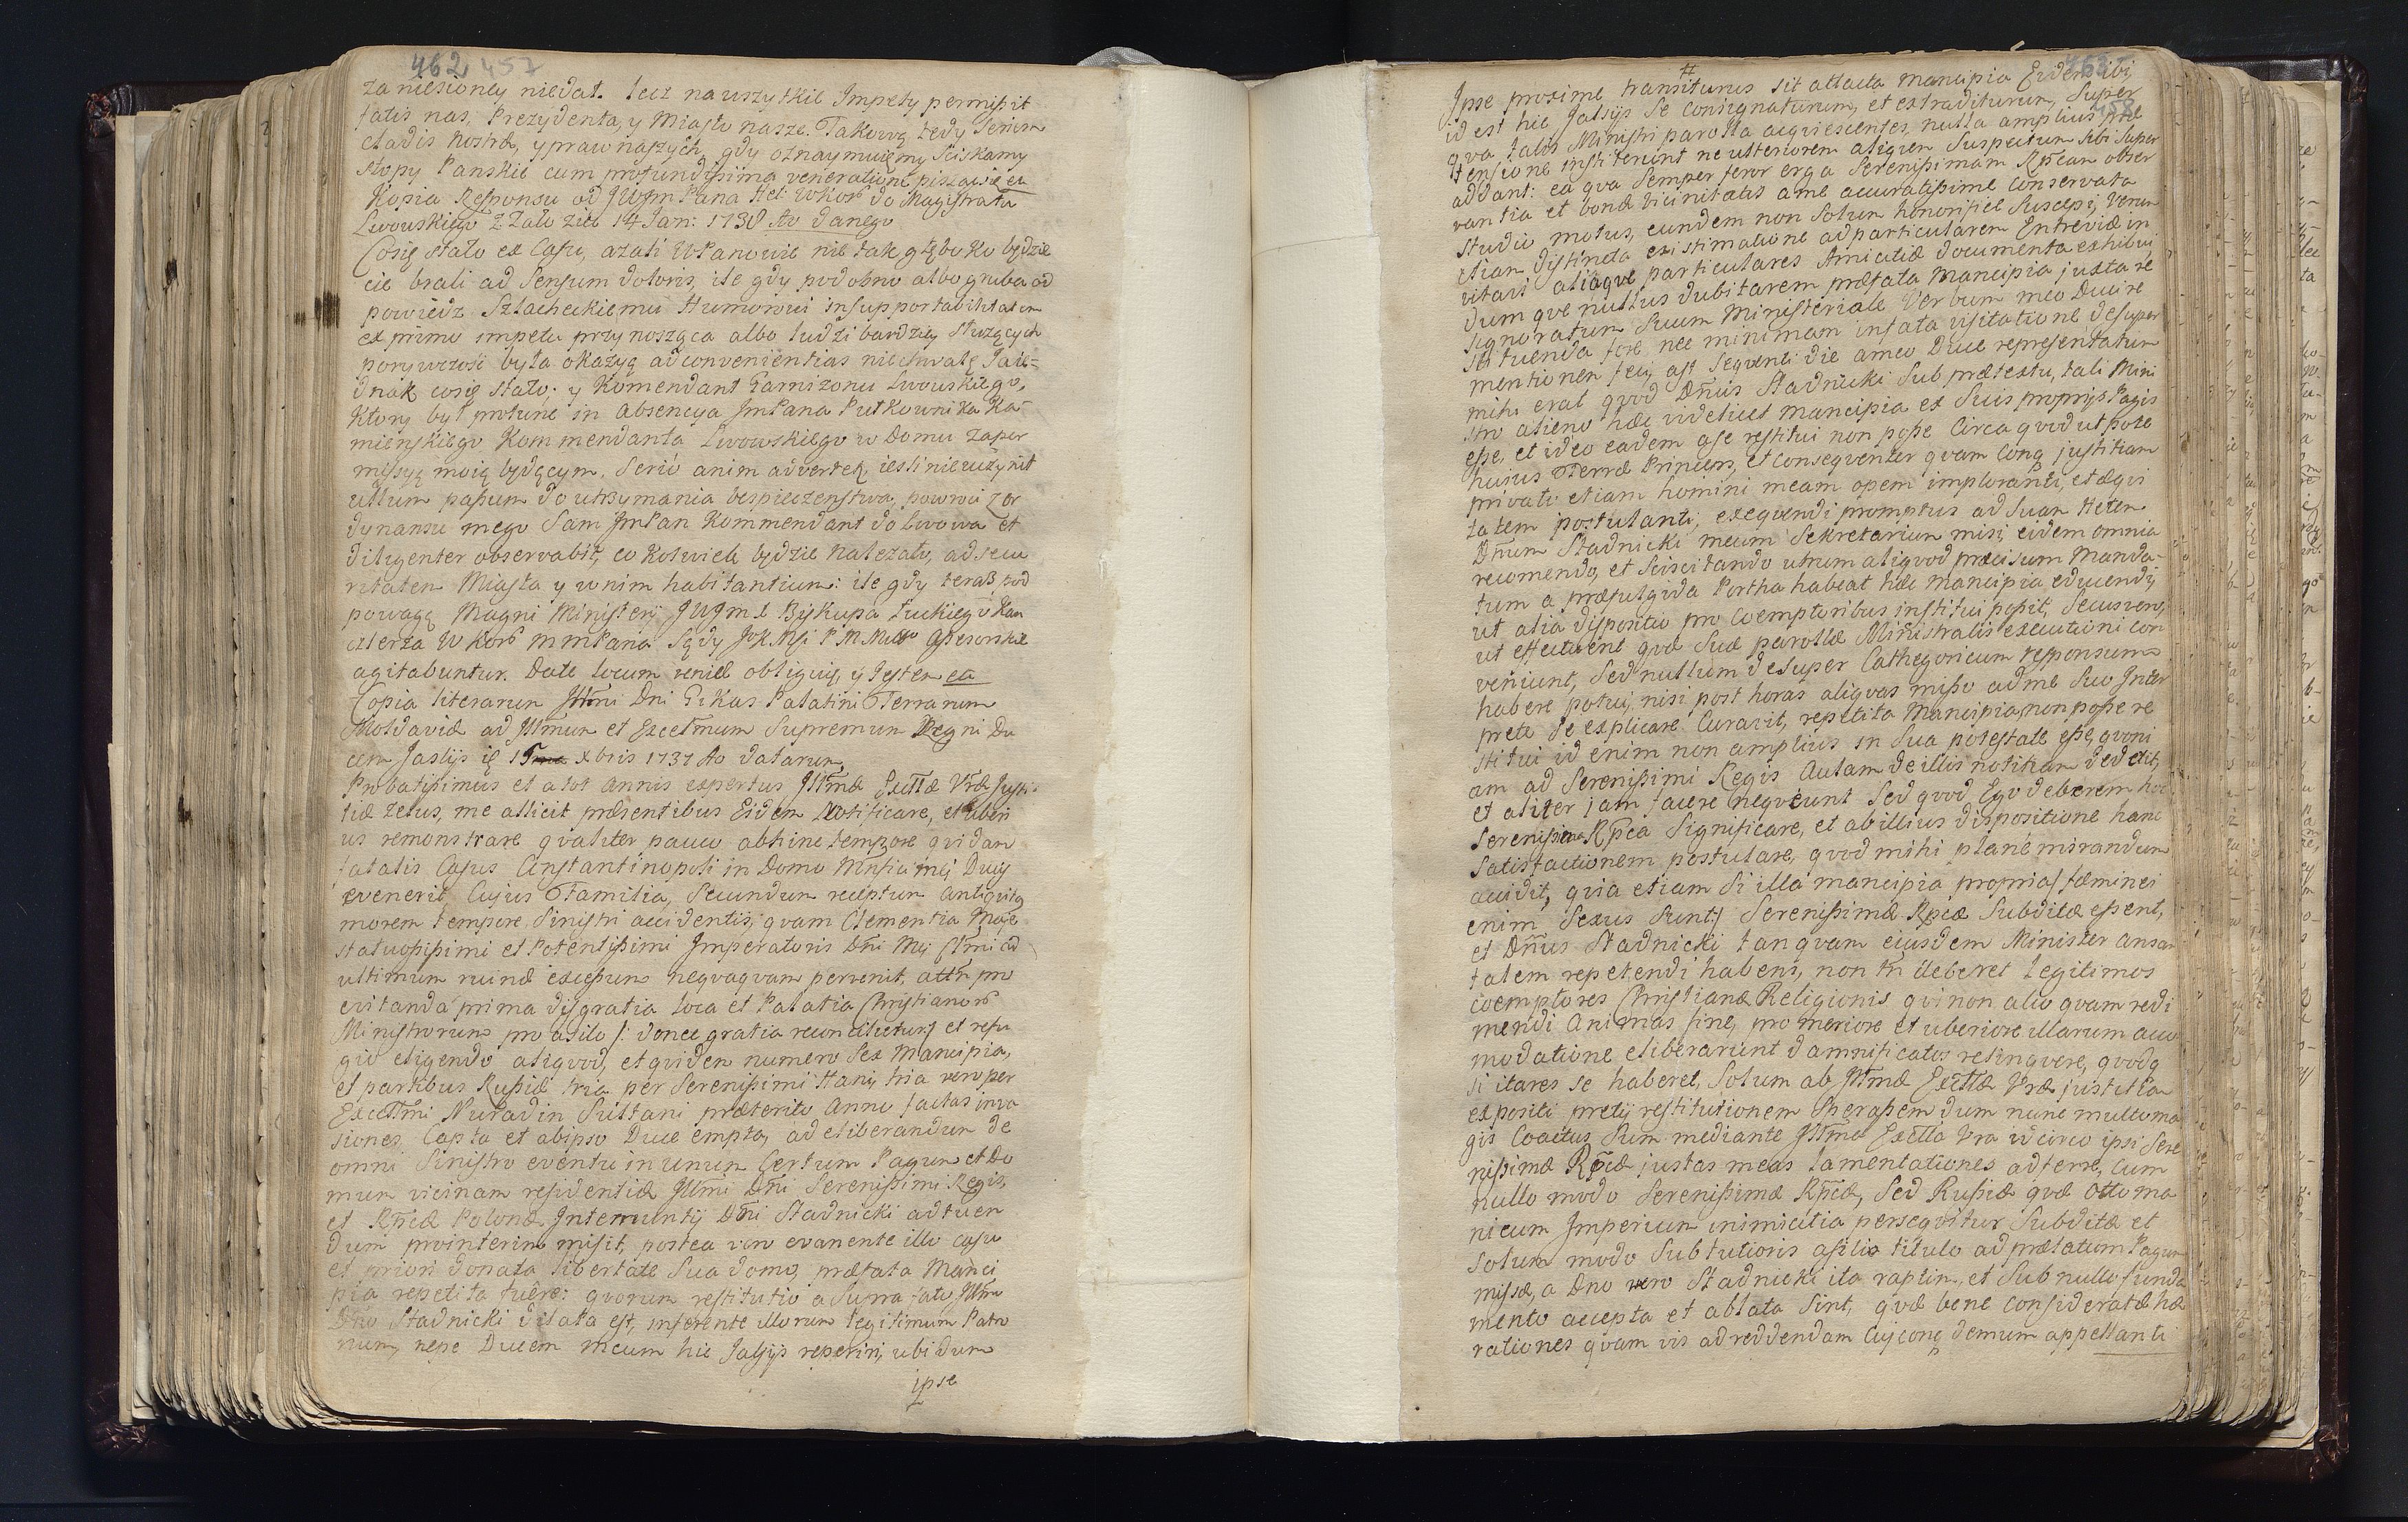 462 457
zaniesioney niedał. lecz na uszytkie Impety permisit
fatis nas, Prezydenta, y Miasto nasze. Takową tedy Seriem
cladis nostræ, y praw naszych, gdy oznaymuiemy Sciskamy
stopy Panskie cum profundissima veneratione piszącsię etc
Kopia Responsu od JWJm Pana Het: WKor do Magistratu
Lwowskiego z Załoziec 14 Jan: 1738 Ao danego
Cosię stało ex Casu, azali WPanowie nie tak głęboko będzie
cie brali ad Sensum doloris, ile gdy podobno albo gruba od
powiedz Szlacheckiemu Humorowi insupportabilitatem
ex primo impetu przynosząca albo ludzi bardziey służących
porywczość była okazyą ad convenientias niechwalę Jaie-
dnak cosię stało; y Komendant Garnizonu Lwowskiego,
Ktory był protunc in absencya JmPana Pułkownika Ka-
mienskiego Kommendanta Lwowskiego w Domu zaper
missyą moią będącym. Serio anim advertet, iesli nieuczynił
ullum passum do utrzymania bespieczenstwa, powroci z or
dynansu mego Sam JmPan Kommendant do Lwowa et
diligenter observabit, co kolwiek będzie należało, ad secu
ritatem Miasta y wnim habitantium: ile gdy teraz pod
powagą Magni Ministerij JWJm X Biskupa Łuckiego Kan
clerza WKor mmPana Sądy JKMsi PNMillo Assesorskie
agitabuntur. Date locum veniæ obliguię, y Jestem etc
Copia literarum Illmi Dni Gikas Palatini Terrarum
Moldaviæ ad Illmum et Excellmum Supremum Regni Du
cem Jassijs ię 15 Xbris 1737 Ao datarum
Probatissimus et a tot annis expertus Illmæ Exctiæ Vræ Justi-
tiæ zelus, me allicit præsentibus Eidem Notificare, et uberi
us remonstrare qvaliter pauco abhinc tempore qvidam
fatalis Casus Constantinopoli in Domo Mei Ducis
evenerit, Cujus Familia, Secundum receptum antiquitq
morem tempore Sinistri accidentis, qvam Clementia Maje
statuosissimi et Potentissimi Imperatoris Dni Mei Clmi ad
ultimum ruinæ excessum neqvaqvam pervenit, attn pro
evitanda prima disgratia loca et Palatia Christianor
Ministrorum pro asilo /: donec gratia reconcilietur :/ et refu
gio eligendo aliqvod, et qvidem numero Sex Mancipia,
et partibus Russiæ tria per Serenissimi Hani, tria vero per
Excellmi Nuradin Sultani præterito Anno factas inva
siones Capta et abipso Duce empta, ad eliberandum de
omni Sinistro eventu in unum Certum Pagum et Do
mum vicinam residentiæ Illmi Dni Serenissimi Regis,
et Rpcæ Polonæ Internuntij Dni Stadnicki ad tuen
dum prointerim misit, postea vero evanente illo casu
et priori donata libertate Sua domo, præfata Manci
pia repetita fuere: qvorum restitutio a Supra fato Illmo
Dno Stadnicki dilata est, inferente illorum legitimum Patro
num, nepe Ducem meum hic Jassijs reperiri, ubi dum
ipse
463
458
Ipse proxime transiturus sit attacta Mancipia Eidem ibi,
id est hic Jassijs Se Consignaturum, et extraditurum, Super
qva talis Ministri parolla acqviescentes, nulla amplius præ
tensione institerunt ne ulteriorem aliqvem Suspectum sibi Super
addant: ea qva Semper feror erga Serenissimam Rpcam obser
vantia et bonæ vicinitatis a me accuratissime Conservata
Studio motus, eundem non Solum honorifice Suscepi, Verum
etiam distincta existimatione ad particularem Entreviæ in
vitavi aliaqve particulares Amicitiæ documenta exhibui
dumqve nullus dubitarem præfata Mancipia juxta re
signoratum Suum Ministeriale Verbum meo Duci re
stituenda fore nec minimam in fata visitatione desuper
mentionem feci, ast Seqventi die a meo Duce repræsentatum
mihi erat qvod Dnus Stadnicki Sub prætextu, tali Mini
stro alieno hæc videlicet mancipia ex Suis proprijs Pagis
esse, et ideo eadem a se restitui non posse Circa qvod utpote
huius Terræ Princeps, et Conseqventer qvam Conq justitiam
privato etiam homini meam opem imploranti, et æqvi
tatem postulanti, exeqvendi promptus ad Suam Hetem
Dnum Stadnicki meum Sekretarium misi, eidem omnia
recomendo, et Sciscitando utrum aliqvod præcisum Manda-
tum a præfulgida Portha habeat hæc mancipia educendi,
ut alia dispositio pro Coemptoribus institui possit, Secus vero,
ut effectuent qvæ Suæ parollæ Ministralis executioni Con
veniunt, Sed nullum desuper Cathegoricum responsum
habere potui, nisi post horas aliqvas misso ad me Suo Inter
prete Se explicare Curavit, repetita Mancipia non posse re
stitui id enim non amplius in Sua potestate esse, qvoni
am ad Serenissimi Regis Aulam de illis notitiam dedit,
et aliter jam facere neqveunt Sed qvod Ego deberem hoc
Serenissima Rpca Significare, et abillius dispositione hanc
Satisfactionem postulare, qvod mihi plané mirandum
accidit, qvia etiam Si illa mancipia propria /: fæminei
enim Sexus Sunt :/ Serenissimæ Rpcæ Subditæ essent,
et Dnus Stadnicki tanqvam eiusdem Minister ansam
talem repetendi habens, non tn deberet legitimos
coemptores Christianæ Religionis qvi non alio qvam redi
mendi Animas fine, pro meriore et uberiore illarum acco
modatione eliberarunt damnificatos relinqvere, qvodq
si ita res se haberet, Solum ab Illmæ Exctiæ Vræ justitia
expositi pretij restitutionem Sperassem dum nunc multo ma
gis Coactus Sum mediante Illma Exctia Vra idcirco ipsi Sere
nissimæ Rpcæ justas meas lamentationes adferre, Cum
nullo modo Serenissimæ Rpcæ, Sed Russiæ qvæ Ottoma
nicum Imperium inimicitia perseqvitur Subditæ et
Solum modo Sub tutioris asilis titulo ad prætatum Pagum
missæ, a Dno vero Stadnicki ita raptim, et Sub nullo funda
mento accepta et ablata Sint, qvæ bene Consideratæ hæ
rationes qvam vis ad reddendam Cuiconq demum appellanti